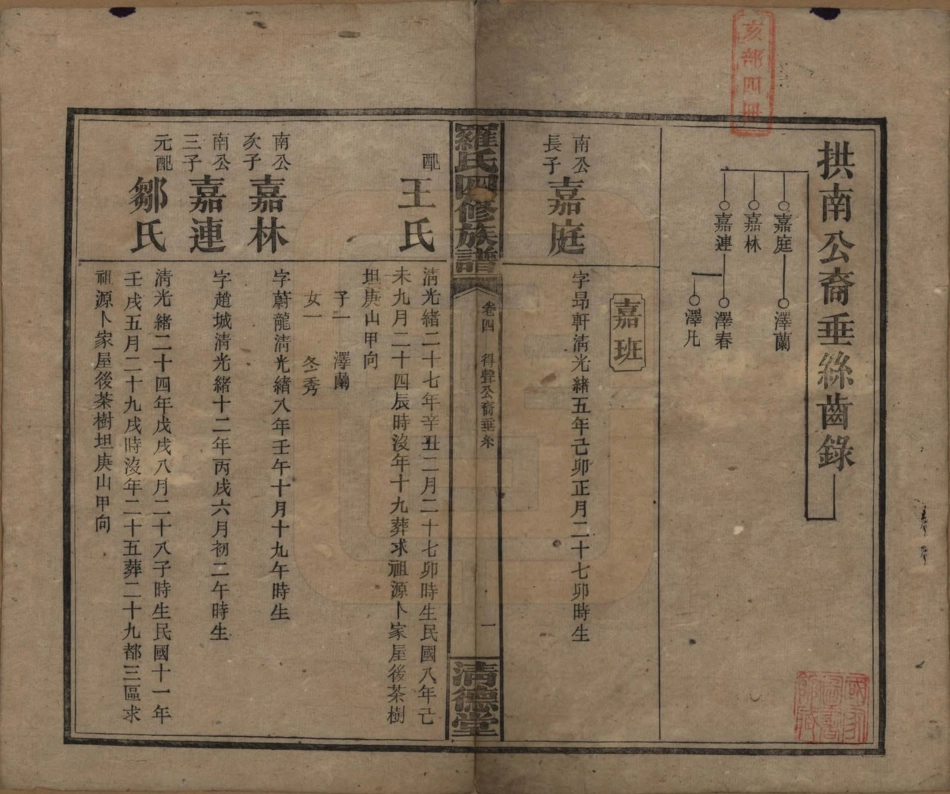 亥部四冊
拱南公裔垂絲齒錄
嘉庭 澤蘭
嘉林
嘉連 澤春
澤凡
嘉班
南公長子 嘉庭
字昂軒清光緒五年己卯正月二十七卯時生
羅氏四修族譜 卷四 得聲公裔垂糸 一 清德堂
配 王氏
清光緒二十七年辛丑二月二十七卯時生民國八年己
未九月二十四辰時沒年十九葬求祖源卜家屋後茶樹
坦庚山甲向
子一 澤蘭
女一 冬秀
南公次子 嘉林
字蔚龍清光緒八年壬午十月十九午時生
南公三子 嘉連
字趙城清光緒十二年丙戌六月初二午時生
元配 鄒氏
清光緒二十四年戊戌八月二十八子時生民國十一年
壬戌五月二十九戌時沒年二十五葬二十九都三區求
祖源卜家屋後茶樹坦庚山甲向